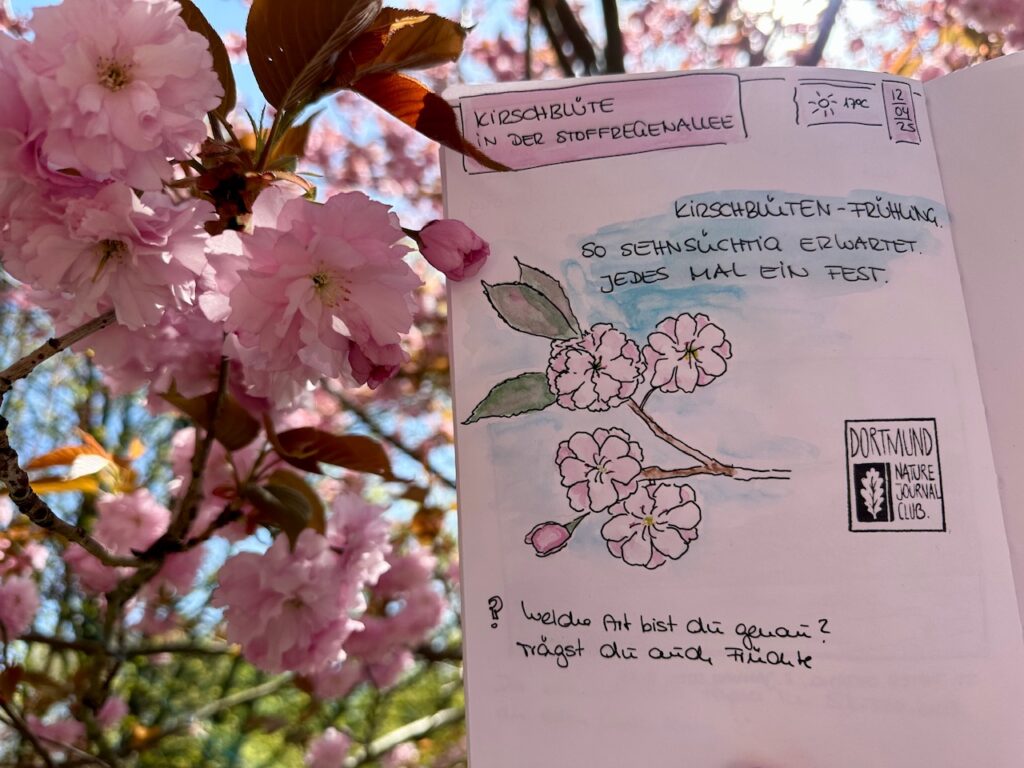 KIRSCHBLÜTE
IN DER STOFFREGENALLEE
17°C
12
04
25
KIRSCHBLÜTEN-FRÜHLING.
SO SEHNSÜCHTIG ERWARTET.
JEDES MAL EIN FEST.
DORTMUND
NATURE
JOURNAL
CLUB.
? Welche Art bist du genau?
Trägst du auch Früchte